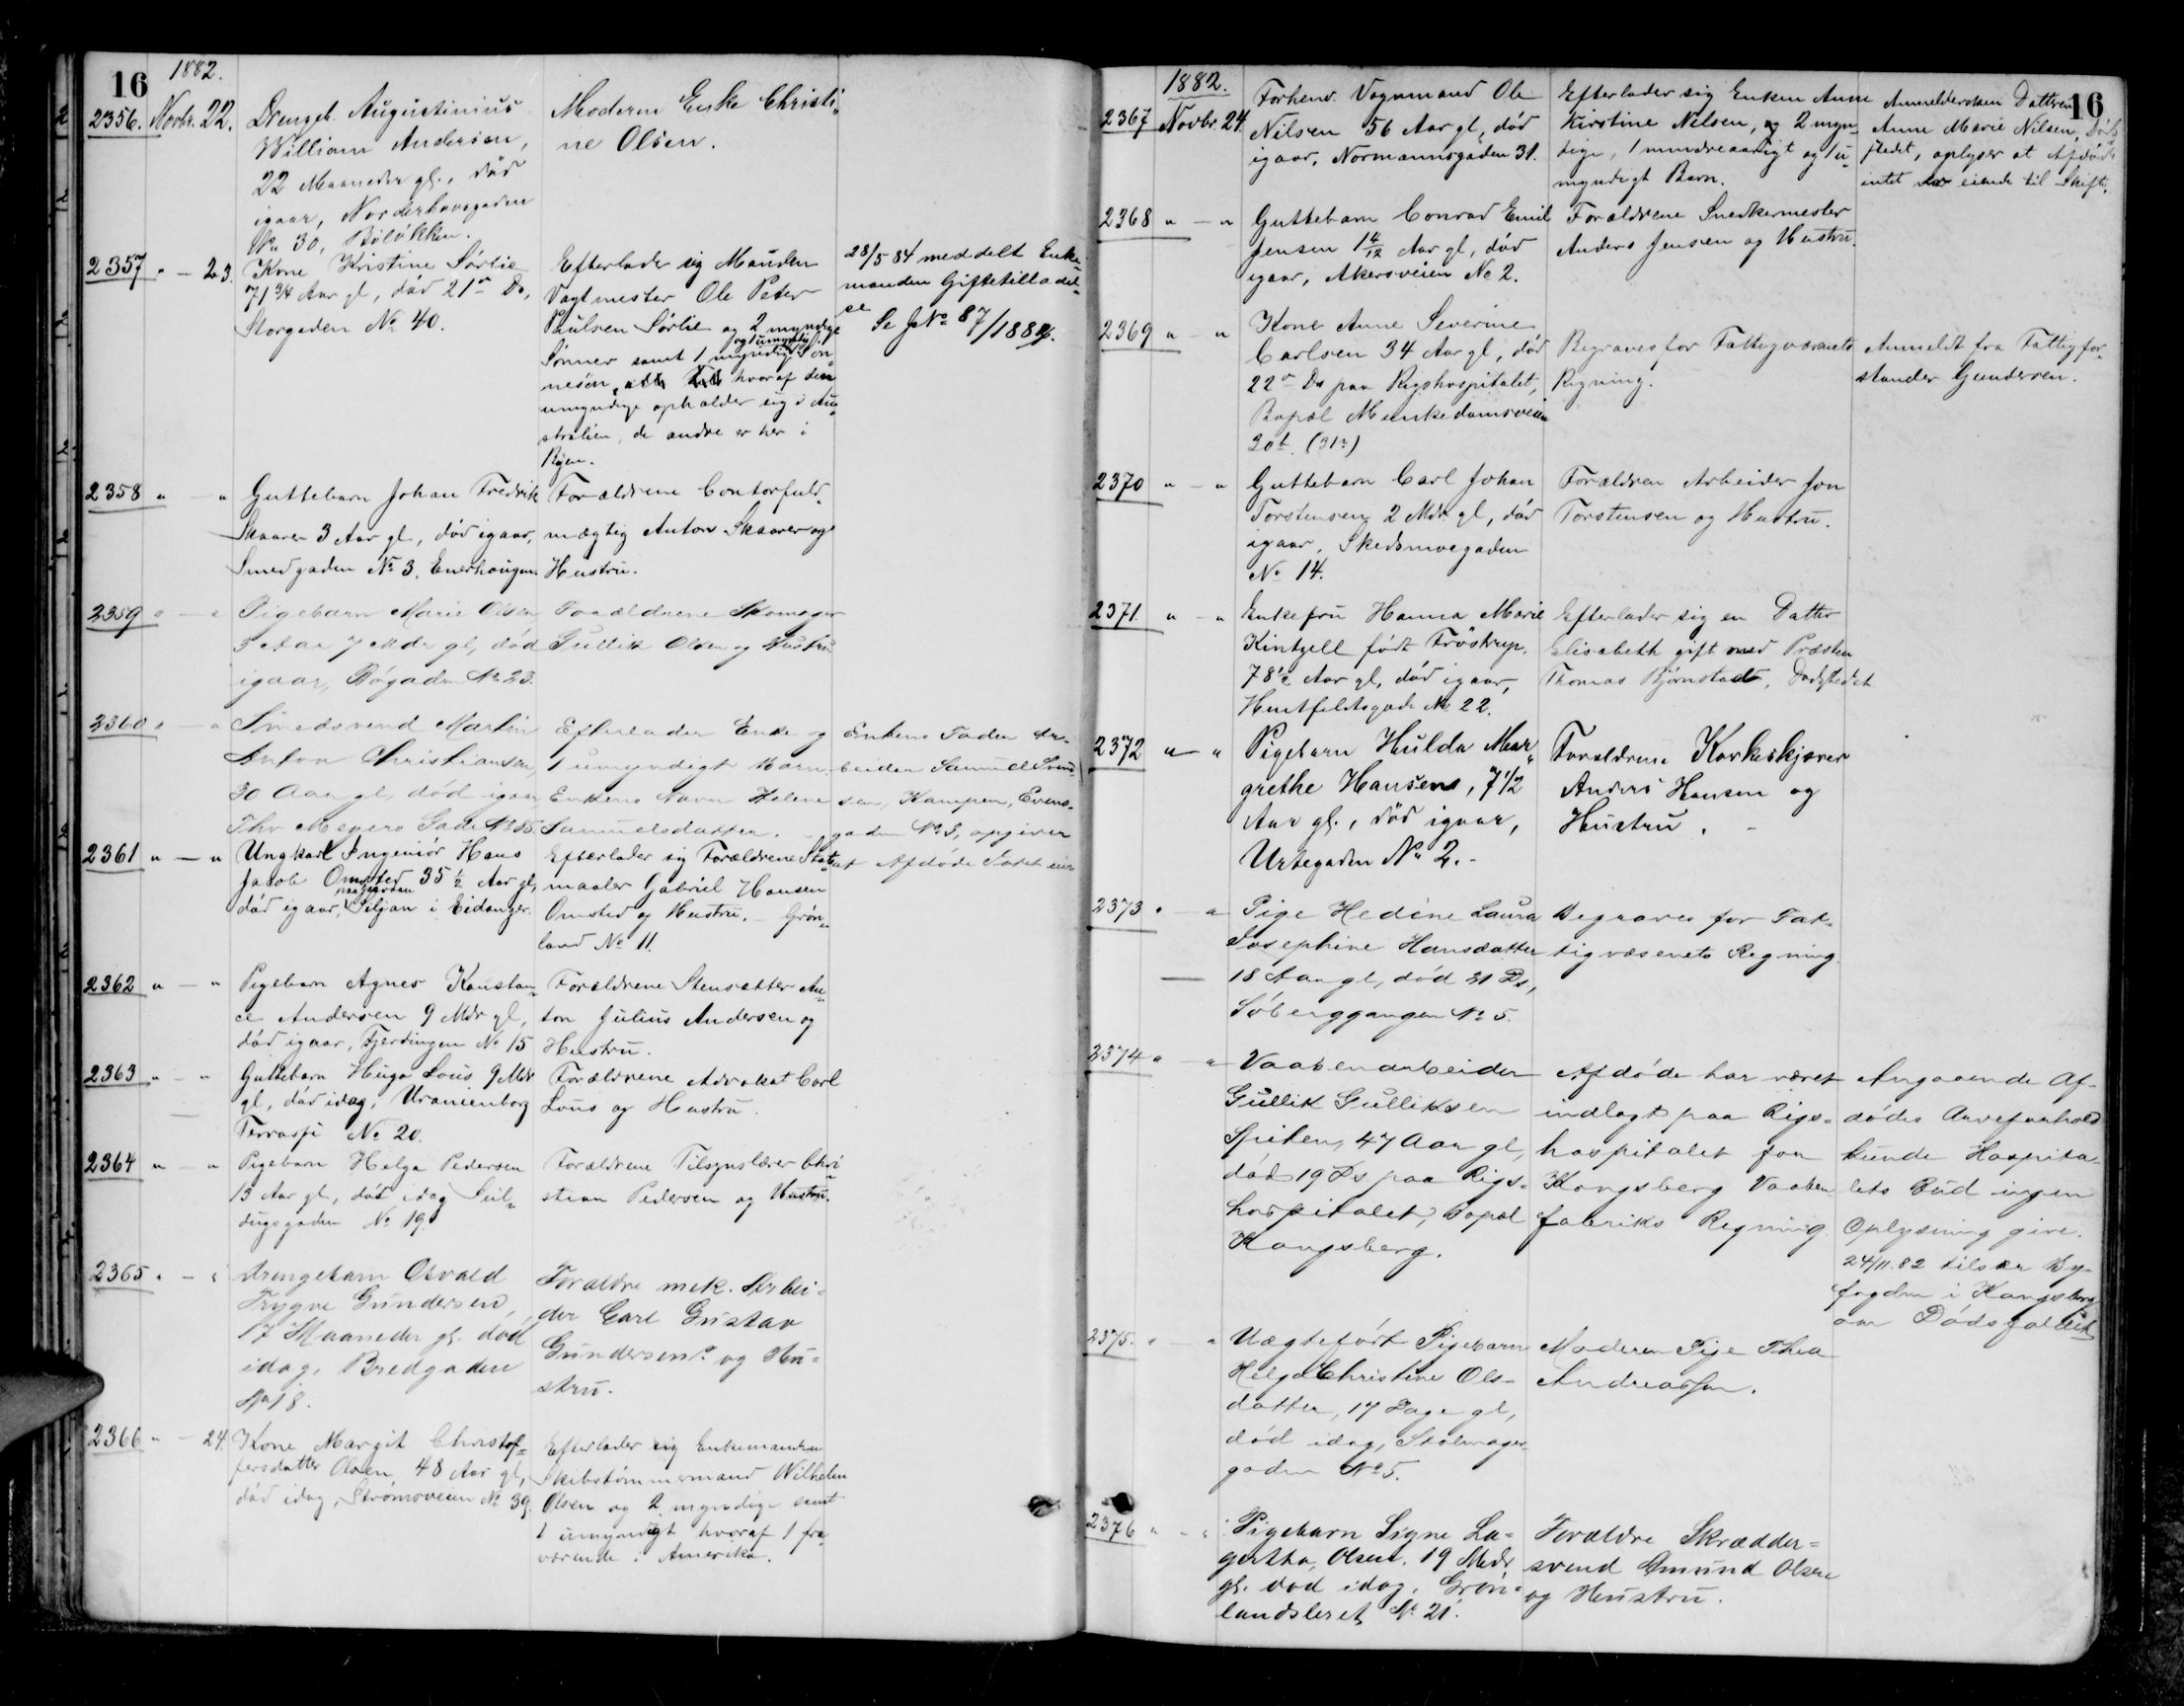 16
1882.
2356. Novbr. 22.
Drengeb. Augustinius
William Andersen,
22 Maaneder gl., død
igaar, Nordrehavegaden
No 30, Bøløkken.
Moderen Enke Christi-
ne Olsen.
2357 " - 23.
Kone Kristine Sørlie
71 3/4 Aar gl, død 21de Ds,
Storgaden No 40.
Efterlader sig Manden
Vagtmester Ole Peter
Paulsen Sørlie og 2 myndige
og 1 umyndig
Sønner samt 1 myndig Søn-
nesøn, hvoraf den
umyndige opholder sig i Au-
stralien, de andre er her i
Byen.
28/5 84 meddelt Enke-
manden Giftetilladel-
se
Se J No 87/1884.
2358 " - "
Guttebarn Johan Fredrik
Skaarer 3 Aar gl, død igaar,
Smedgaden No 3, Enerhaugen.
Forældrene Contorfuld-
mægtig Anton Skaarer og
Hustru.
2359 " - "
Pigebarn Marie Olsen
3 Aar 7 Mdr gl, død
igaar, Bøgaden No 23.
Forældrene Skomager
Gullik Olsen og Hustru
2360 " - "
Smedsvend Martin
Anton Christiansen,
30 Aar gl, død igaar
Thv Meyers Gade No 88.
Efterlader Enke og
1 umyndigt Barn.
Enkens Navn Helene
Samuelsdatter.
Enkens Fader Ar-
beider Samuel Svend-
sen, Kampen, Evens-
gaden No 3, opgiver
at Afdøde Intet eier
2361 " - "
Ungkarl Ingeniør Hans
Jacob Omsted 35 1/2 Aar gl,
paa Gaarden
død igaar, Siljan i Eidanger.
Efterlader sig Forældrene Stat-
maaler Gabriel Hansen
Omsted og Hustru. - Grøn-
land No 11.
2362 " - "
Pigebarn Agnes Konstan-
ce Andersen 9 Mdr gl,
død igaar, Fjerdingen No 15
Forældrene Stensætter An-
ton Julius Andersen og
Hustru.
2363 " - "
Guttebarn Hugo Lous 9 Mdr
gl, død idag, Uranienborg
Terrasse No 20.
Forældrene Advokat Carl
Lous og Hustru.
2364 " - "
Pigebarn Helga Pedersen
13 Aar gl, død idag Seil-
dugsgaden No 19.
Forældrene Tilsynslærer Chri-
stian Pedersen og Hustru.
2365 " - "
Drengebarn Osvald
Trygve Gundersen,
17 Maaneder gl. død
idag, Bredgaden
No 18.
Forældre mek. Arbei-
der Carl Gustav
Gundersen og Hu-
stru.
2366 " - 24.
Kone Margit Christof-
fersdatter Olsen 48 Aar gl,
død idag, Strømsveien No 39.
Efterlader sig Enkemanden
Skibstømmermand Wilhelm
Olsen og 2 myndige samt
1 umyndigt hvoraf 1 fra-
værende i Amerika.
16
1882.
2367 Novbr. 24.
Forhenv. Vognmand Ole
Nilsen 56 Aar gl, død
igaar, Normannsgaden 31.
Efterlader sig Enken Anne
Kirstine Nilsen, og 2 myn-
dige, 1 mindreaarigt og 1 u-
myndigt Barn.
Anmeldersken Datteren
Anne Marie Nilsen, Døds-
stedet, oplyser at Afdøde
intet eiende til Skifte.
2368 " - "
Guttebarn Conrad Emil
Jensen 1 4/12 Aar gl, død
igaar, Akersveien No 2.
Forældrene Snedkermester
Anders Jensen og Hustru.
2369 " - "
Kone Anne Severine
Carlsen 34 Aar gl, død
22de Ds paa Rigshospitalet,
Bopæl Munkedamsveien
20b. (31a)
Begraves for Fattigvæsenets
Regning.
Anmeldt fra Fattigfor-
stander Gundersen.
2370 " - "
Guttebarn Carl Johan
Torstensen 2 Mdr. gl, død
igaar, Skedsmoegaden
No 14.
Forældren Arbeider Jon
Torstensen og Hustru.
2371 " - "
Enkefru Hanna Marie
Kintzell født Frøstrup,
78 1/2 Aar gl, død igaar,
Huitfeldtsgade No 22.
Efterlader sig en Datter
Elisabeth gift med Præsten
Thomas Bjørnstad, Dødsstedet
2372 " - "
Pigebarn Hulda Mar-
grethe Hansen, 7 1/2
Aar gl., død igaar,
Urtegaden No 2. -
Forældrene Korkeskjærer
Anders Hansen og
Hustru. -
2373 " - "
Pige Hedine Laura
Josephine Hansdatter
18 Aar gl, død 21 Ds,
Søberggangen No 5.
Begraves for Fat-
tigvæsenets Regning.
2374 " - "
Vaabenarbeider
Gullik Gulliksen
Spiten, 47 Aar gl,
død 19 Ds paa Rigs-
hospitalet, Bopæl
Kongsberg.
Afdøde har været
indlagt paa Rigs-
hospitalet for
Kongsberg Vaaben
fabriks Regning
Angaaende Af-
dødes Arveforhold
kunde Hospita-
lets Bud ingen
Oplysning give.
24/11.82 tilskr By-
fogden i Kongsberg
om Dødsfaldet
2375. " - "
Uægtefødt Pigebarn
Helga Christine Ols-
datter, 17 Dage gl,
død idag, Stolmager-
gaden No 5.
Moderen Pige Thea
Andreassen.
2376 " - "
Pigebarn Signe La-
gertha Olsen. 19 Mdr
gl. død idag, Grøn-
landsleret No 21.
Forældre Skrædder-
svend Omund Olsen
og Hustru.